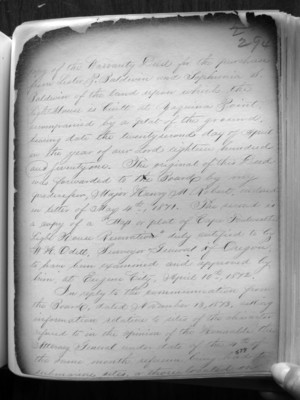 294
of the Warranty Deed for the purchase
from Lester R. Baldwin and Sophronia S.
Baldwin of the land upon which the
Light House is built at Yaquina Point,
accompanied by a plat of the grounds,
bearing date the twenty second day of April
in the year of our Lord eighteen hundred
and seventy one. The original of this Deed
was forwarded to the Board by my
predecessor, Major Henry M. Robert,
in letter of May 4th, 1871. The second is
a copy of a "Map & plat of Cape
Light House Reservation" duly certified to by
W. H. Odell, Surveyor General of Oregon
to have been examined and approved by
him at Eugene City, April 18th, 1872.
In reply to the communication from
the Board, dated November 12, 1873, asking
information relative to titles of the character
in the opinion of the Honorable the
Attorney General under date of the 4th of
the same month,